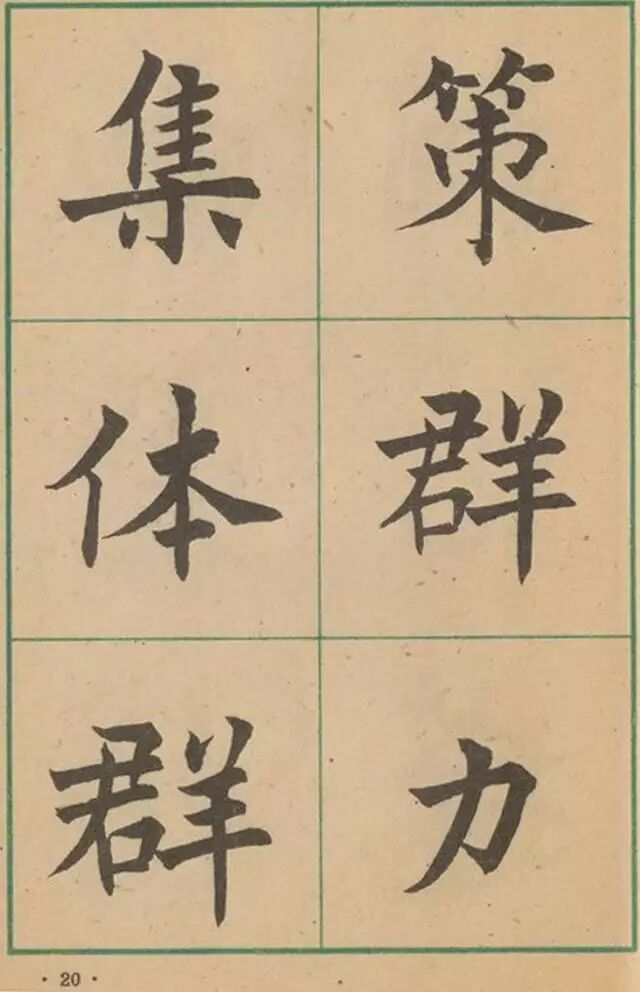 策群力
集体群
· 20 ·